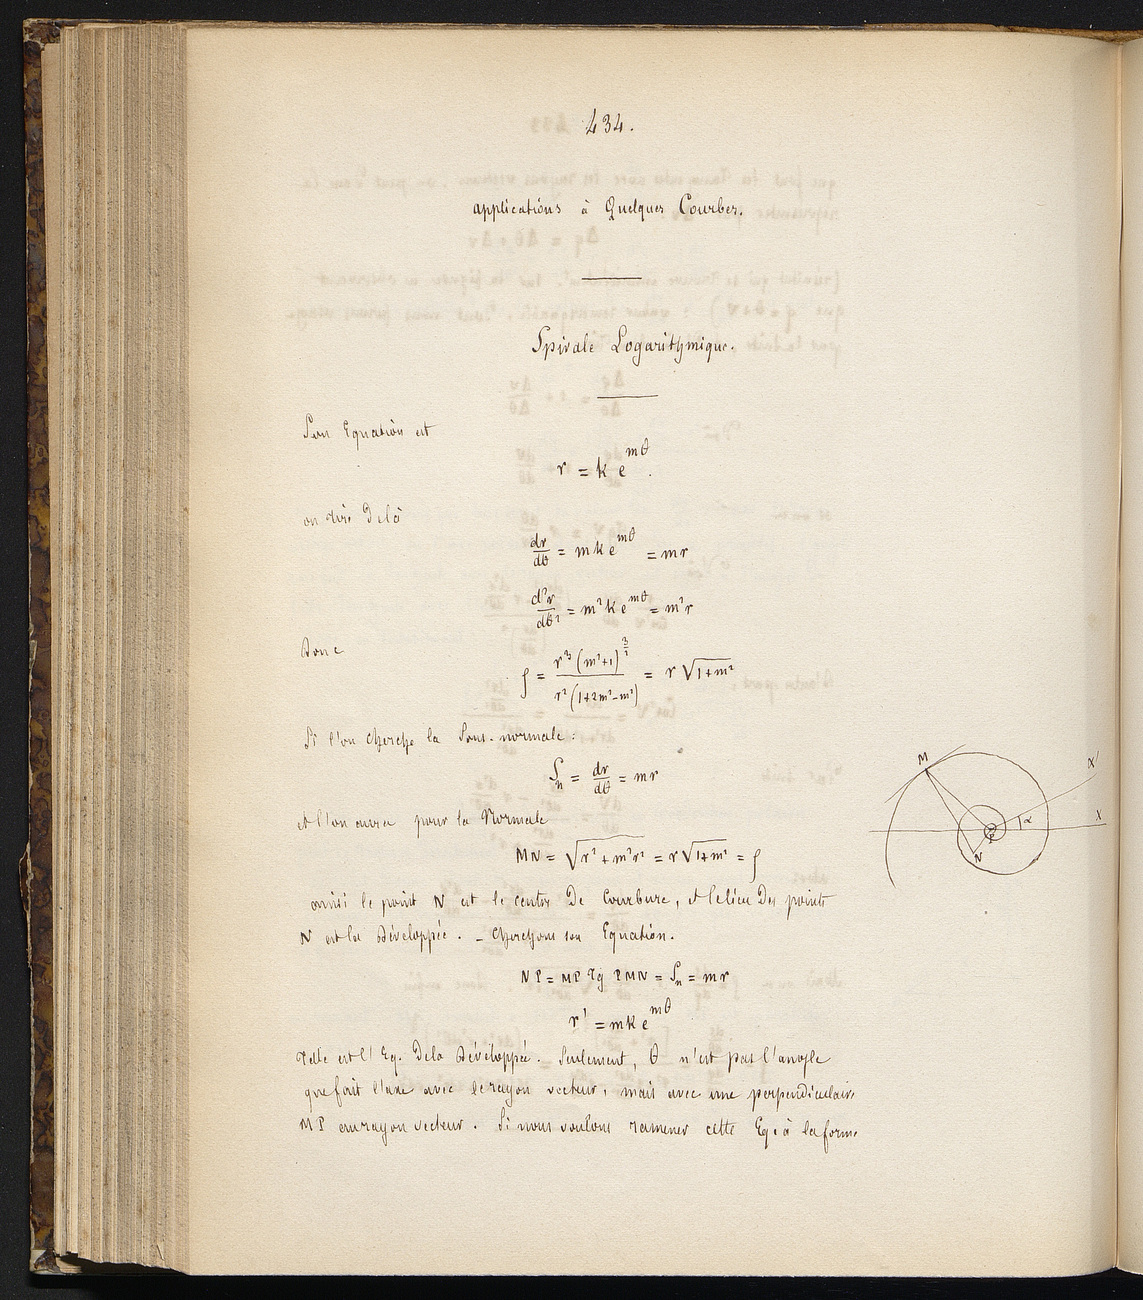 434.
applications à Quelques Courbes.
Spirale Logarithmique.
Son Equation est
r = k e^{mθ}.
on tire delà
dr/dθ = m k e^{mθ} = mr
d²r/dθ² = m² k e^{mθ} = m² r
donc
ρ = r³ (m²+1)^{3/2} / r² (1+2m²-m²) = r √(1+m²)
Si l'on cherche la Sous-normale:
S_n = dr/dθ = mr
et l'on aura pour la Normale
MN = √(r² + m²r²) = r √(1+m²) = ρ
ainsi le point N est le centre de Courbure, et le lieu des points
N est la développée. - Cherchons son Equation.
NP = MP Tg PMN = S_n = mr
r' = m k e^{mθ}
Telle est l'Eq. dela développée. Seulement, θ n'est pas l'angle
que fait l'axe avec le rayon vecteur, mais avec une perpendiculaire
MP au rayon vecteur. Si nous voulons ramener cette Eq. à la forme
M
X'
X
α
P
N